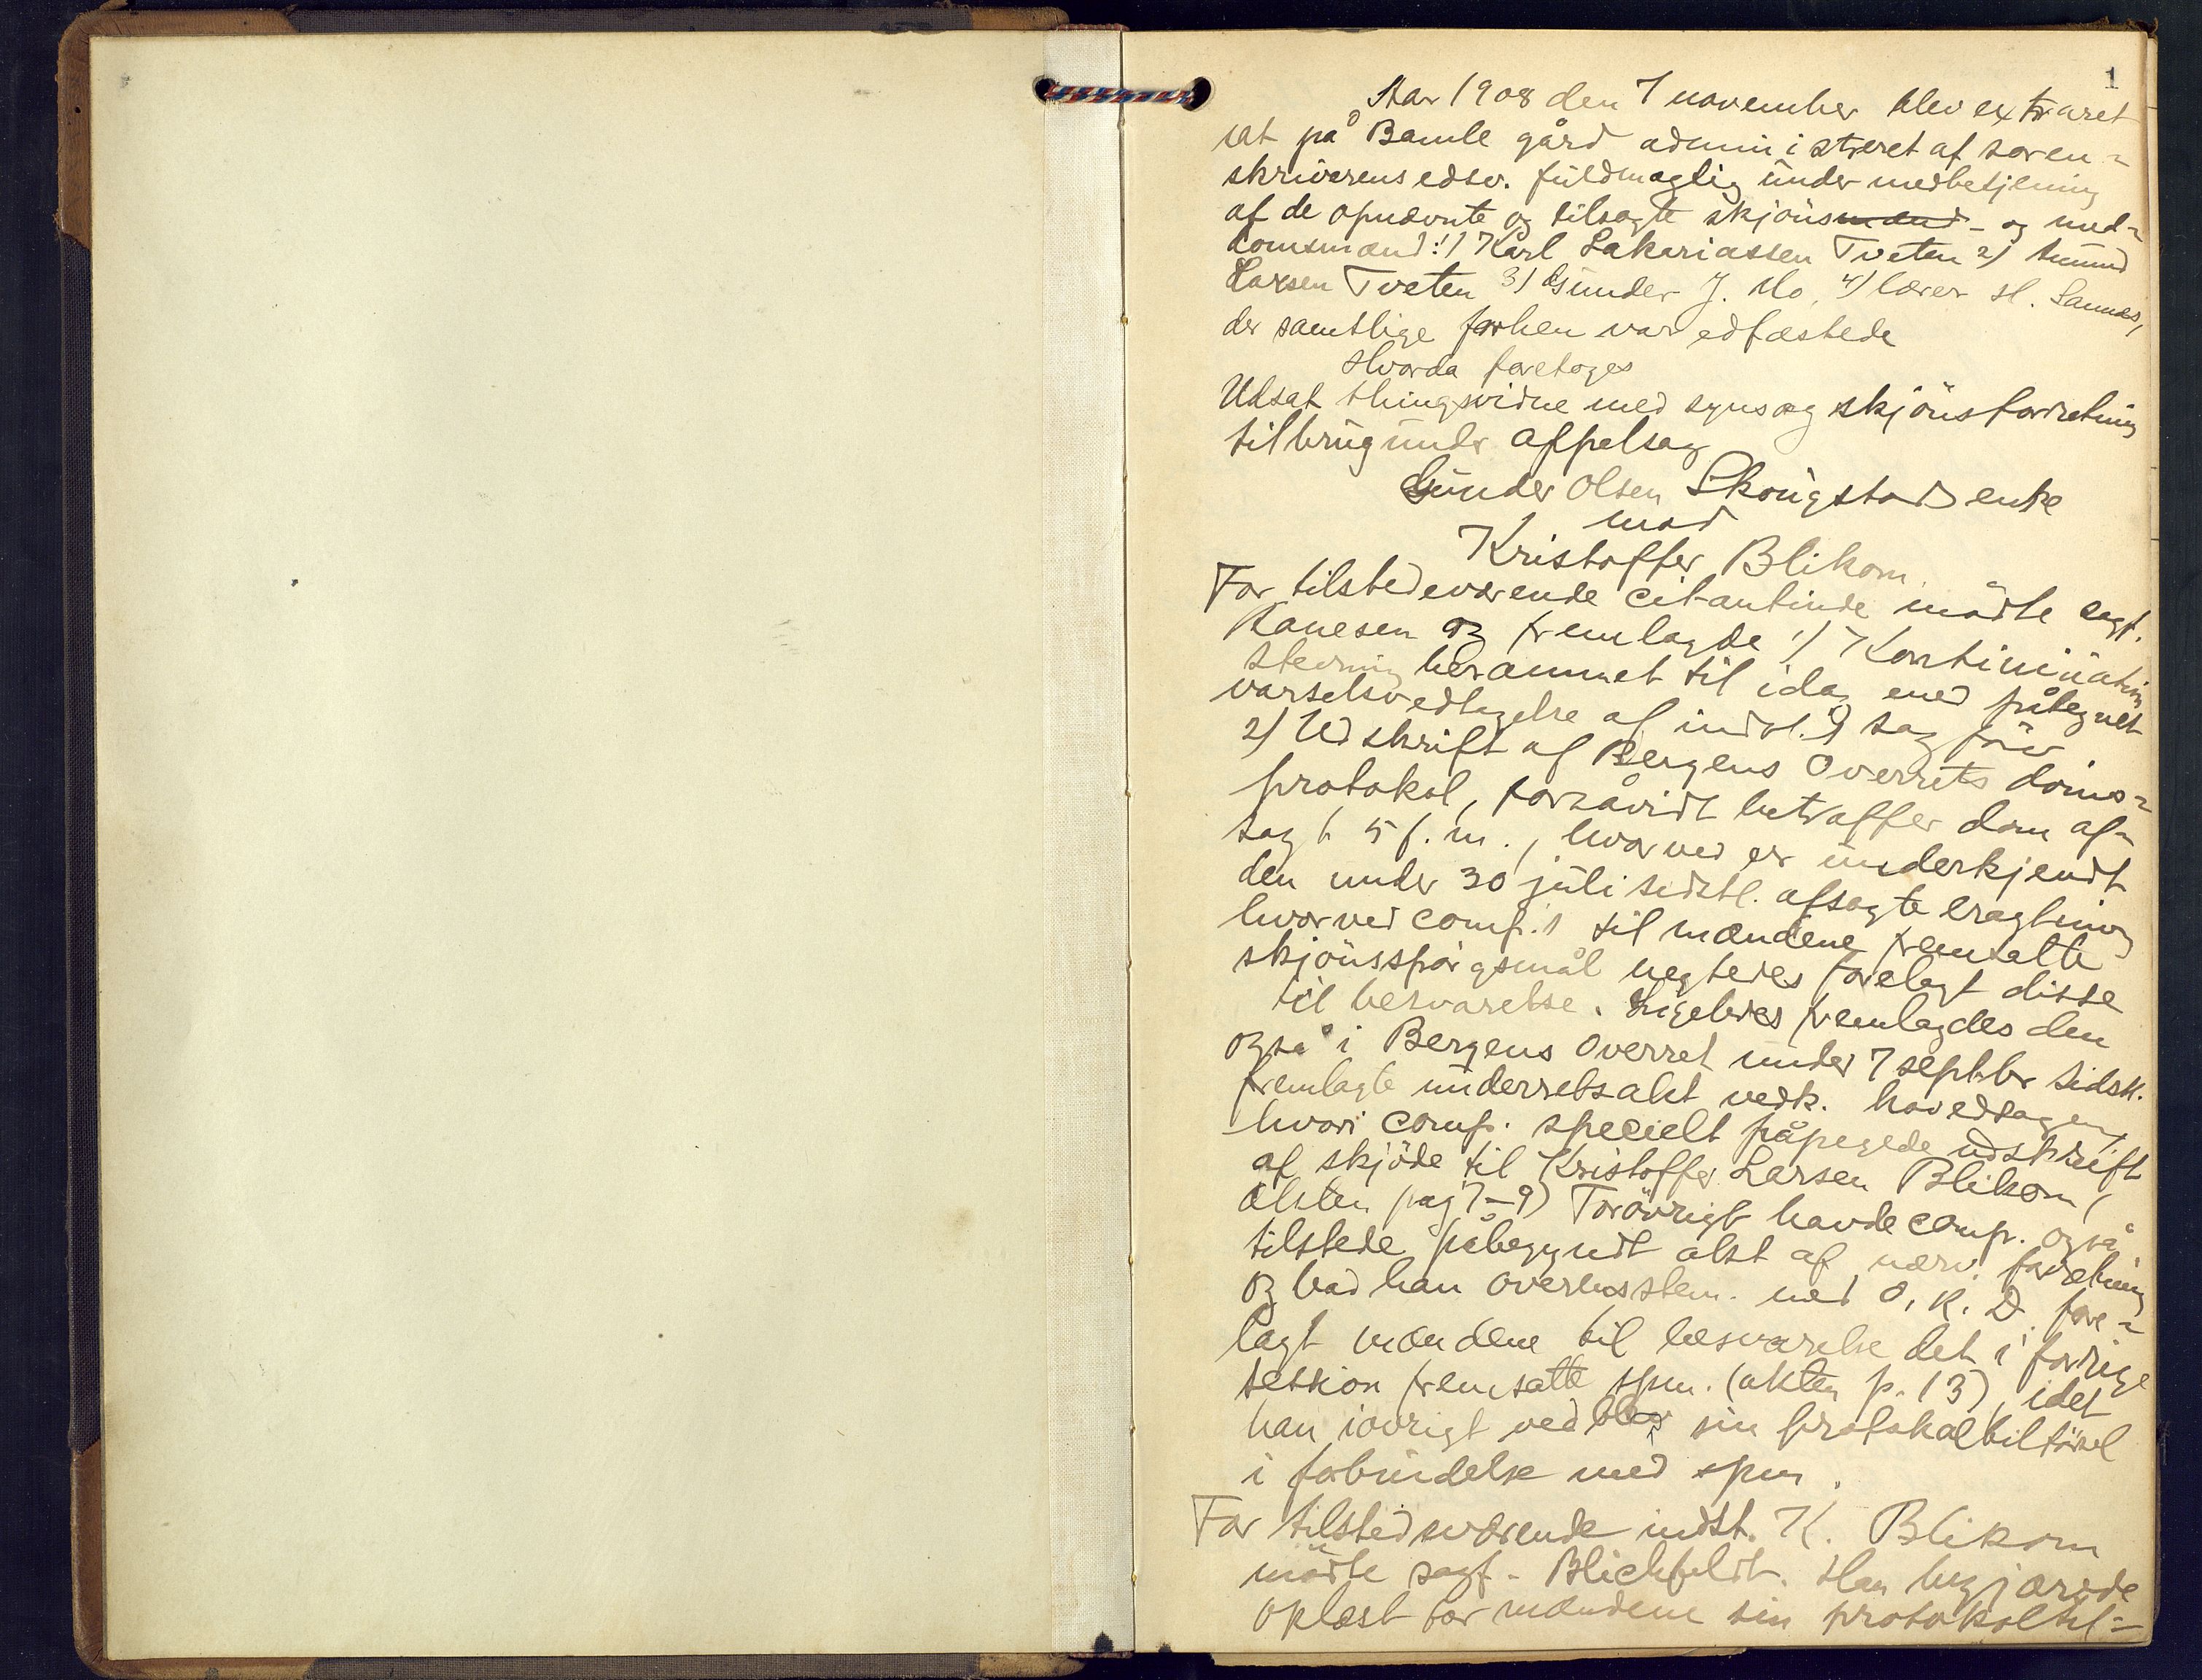 1
Aar 1908 den 7 november blev extraret
sat på Bamle gård administreret af soren-
skriverens edsv. fuldmægtig under medbetjening
af de opnævnte og tilsagte skjønsmænd - og med-
domsmænd: 1) Karl Sakariassen Tveten 2) Amund
Larsen Tveten 3) Gunder J. Mo, 4) lærer H. Sannes,
der samtlige forhen var edfæstede
Hvorda foretoges
Udsat thingsvidne med syns og skjønsforretning
til brug under appelsag
Gunder Olsen Skougstad enke
mod
Kristoffer Blikom.
For tilstedeværende citantinde mödte sagf.
Kanesen og fremlagde 1) Kontinuations
stevning berammet til idag med påtegnet
varselsvedtagelse af indst.s sagfører
2) Udskrift af Bergens Overrets doms-
protokol, forsåvidt betræffer dom af-
sagt 5 f. m., hvorved er underkjendt
den under 30 juli sidstl. afsagte eragtning
hvorved comp.s til mændene fremsatte
skjønsspörgsmål negtedes forelagt disse
til besvarelse. Ligeledes fremlagdes den
også i Bergens Overret under 7 septbr sidstl.
fremlagte underretsakt vedk. hovedsagen,
hvori comp. specielt påpegede udskrift
af skjöde til Kristoffer Larsen Blikom (
akten pag 7-9) Forövrigt havde comp. også
tilstede påbegyndt akt af nærv. forretning
og bad han overensstem. med O. R. D. fore-
lagt mændene til besvarelse det i forrige
session fremsatte spm. (akten p. 13), idet
han iövrigt vedblev sin protokoltilførsel
i forbindelse med spm.
For tilstedeværende indst. K. Blikom
mödte sagf. Blichfeldt. Han begjærede
oplæst for mændene sin protokoltil-